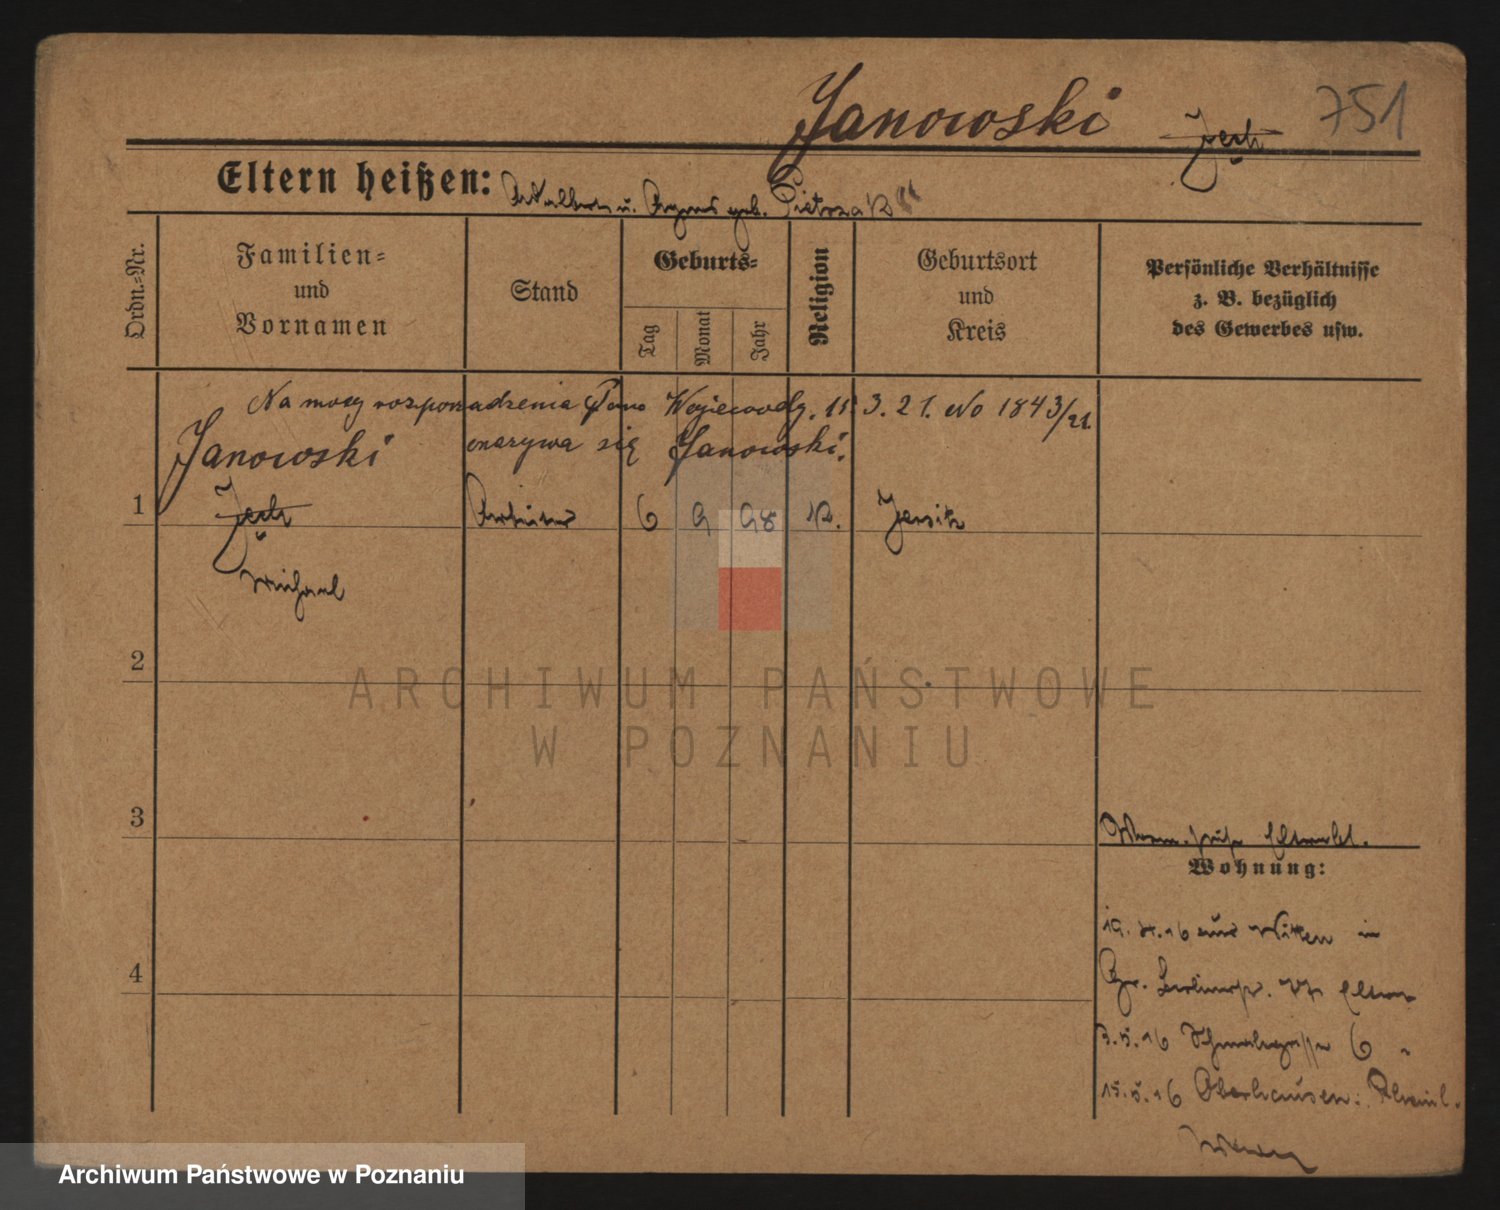 Janowski Jech 751
Eltern heißen: Adalbert u. Agnes geb. Pietrzak
Ordn.-Nr.
Familien-
und
Vornamen
Stand
Geburts-
Tag
Monat
Jahr
Religion
Geburtsort
und
Kreis
Persönliche Verhältnisse
z. B. bezüglich
des Gewerbes usw.
Na mocy rozporządzenia Pana Wojewody. 11 3. 21. No 1843/21.
Janowski nazywa się Janowski.
1 Jech Arbeiter 6 9 98 K. Jersitz
Michael
2
3
4
Wohnung:
19. 4. 16 aus Witten in
Gr. Eltern
3. 5. 16 6
15. 5. 16 Oberhausen. Rheinl.
ARCHIWUM PAŃSTWOWE
W POZNANIU
Archiwum Państwowe w Poznaniu